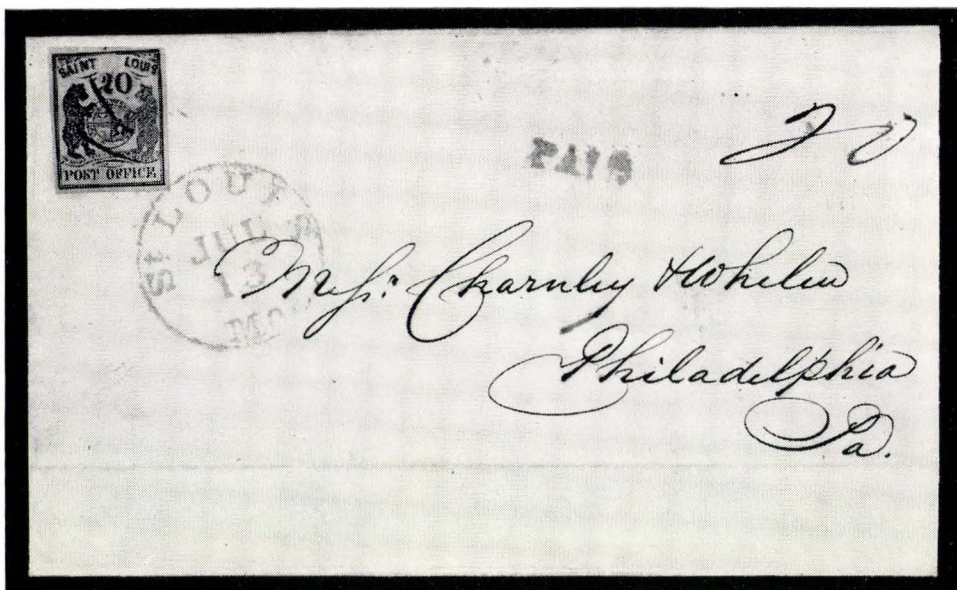 SAINT LOUIS
20
POST OFFICE
PAID
20
ST LOUIS
JUL
13
MO.
Mess: Charnley & Whelen
Philadelphia
Pa.